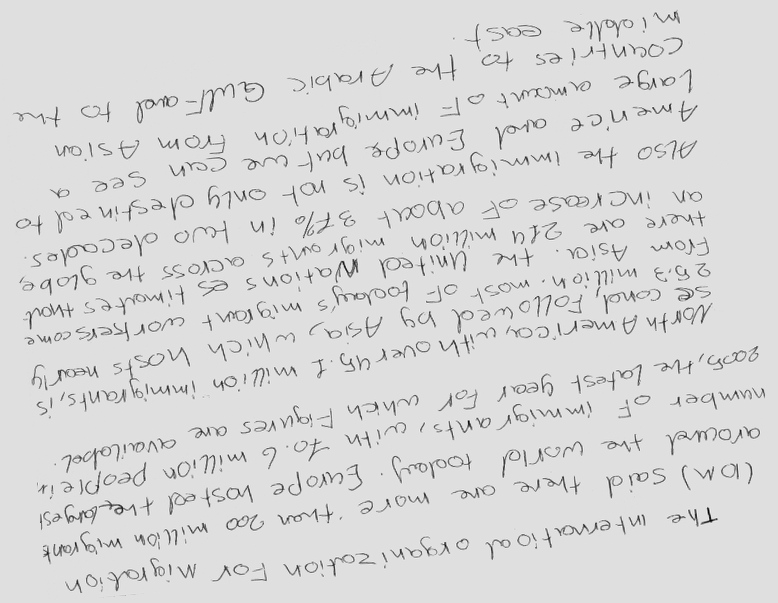 The internatioal organization For Migration
(IOM) said there are more than 200 million migrants
around the world today. Europe hosted the largest
number of immigrants, with 70.6 million people in
2005, the latest year for which Figures are availabel.
North America, with over 45.1 million immigrants, is
second, Followed by Asia, which hosts nearly
25.3 million. most of today's migrant workers come
From Asia. the United Nations estimates that
there are 214 million migrants across the globe,
an increase of about 37% in two decades.
Also the immigration is not only destined to
America and Europe but we can see a
Large amount of immigration From Asian
countries to the Arabic Gulf and to the
middle east.